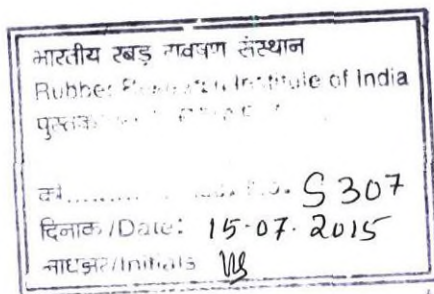 भारतीय रबड़ गवेषण संस्थान
Rubber Research Institute of India
पुस्तकालय
S 307
दिनांक/Date: 15.07.2015
/Initials